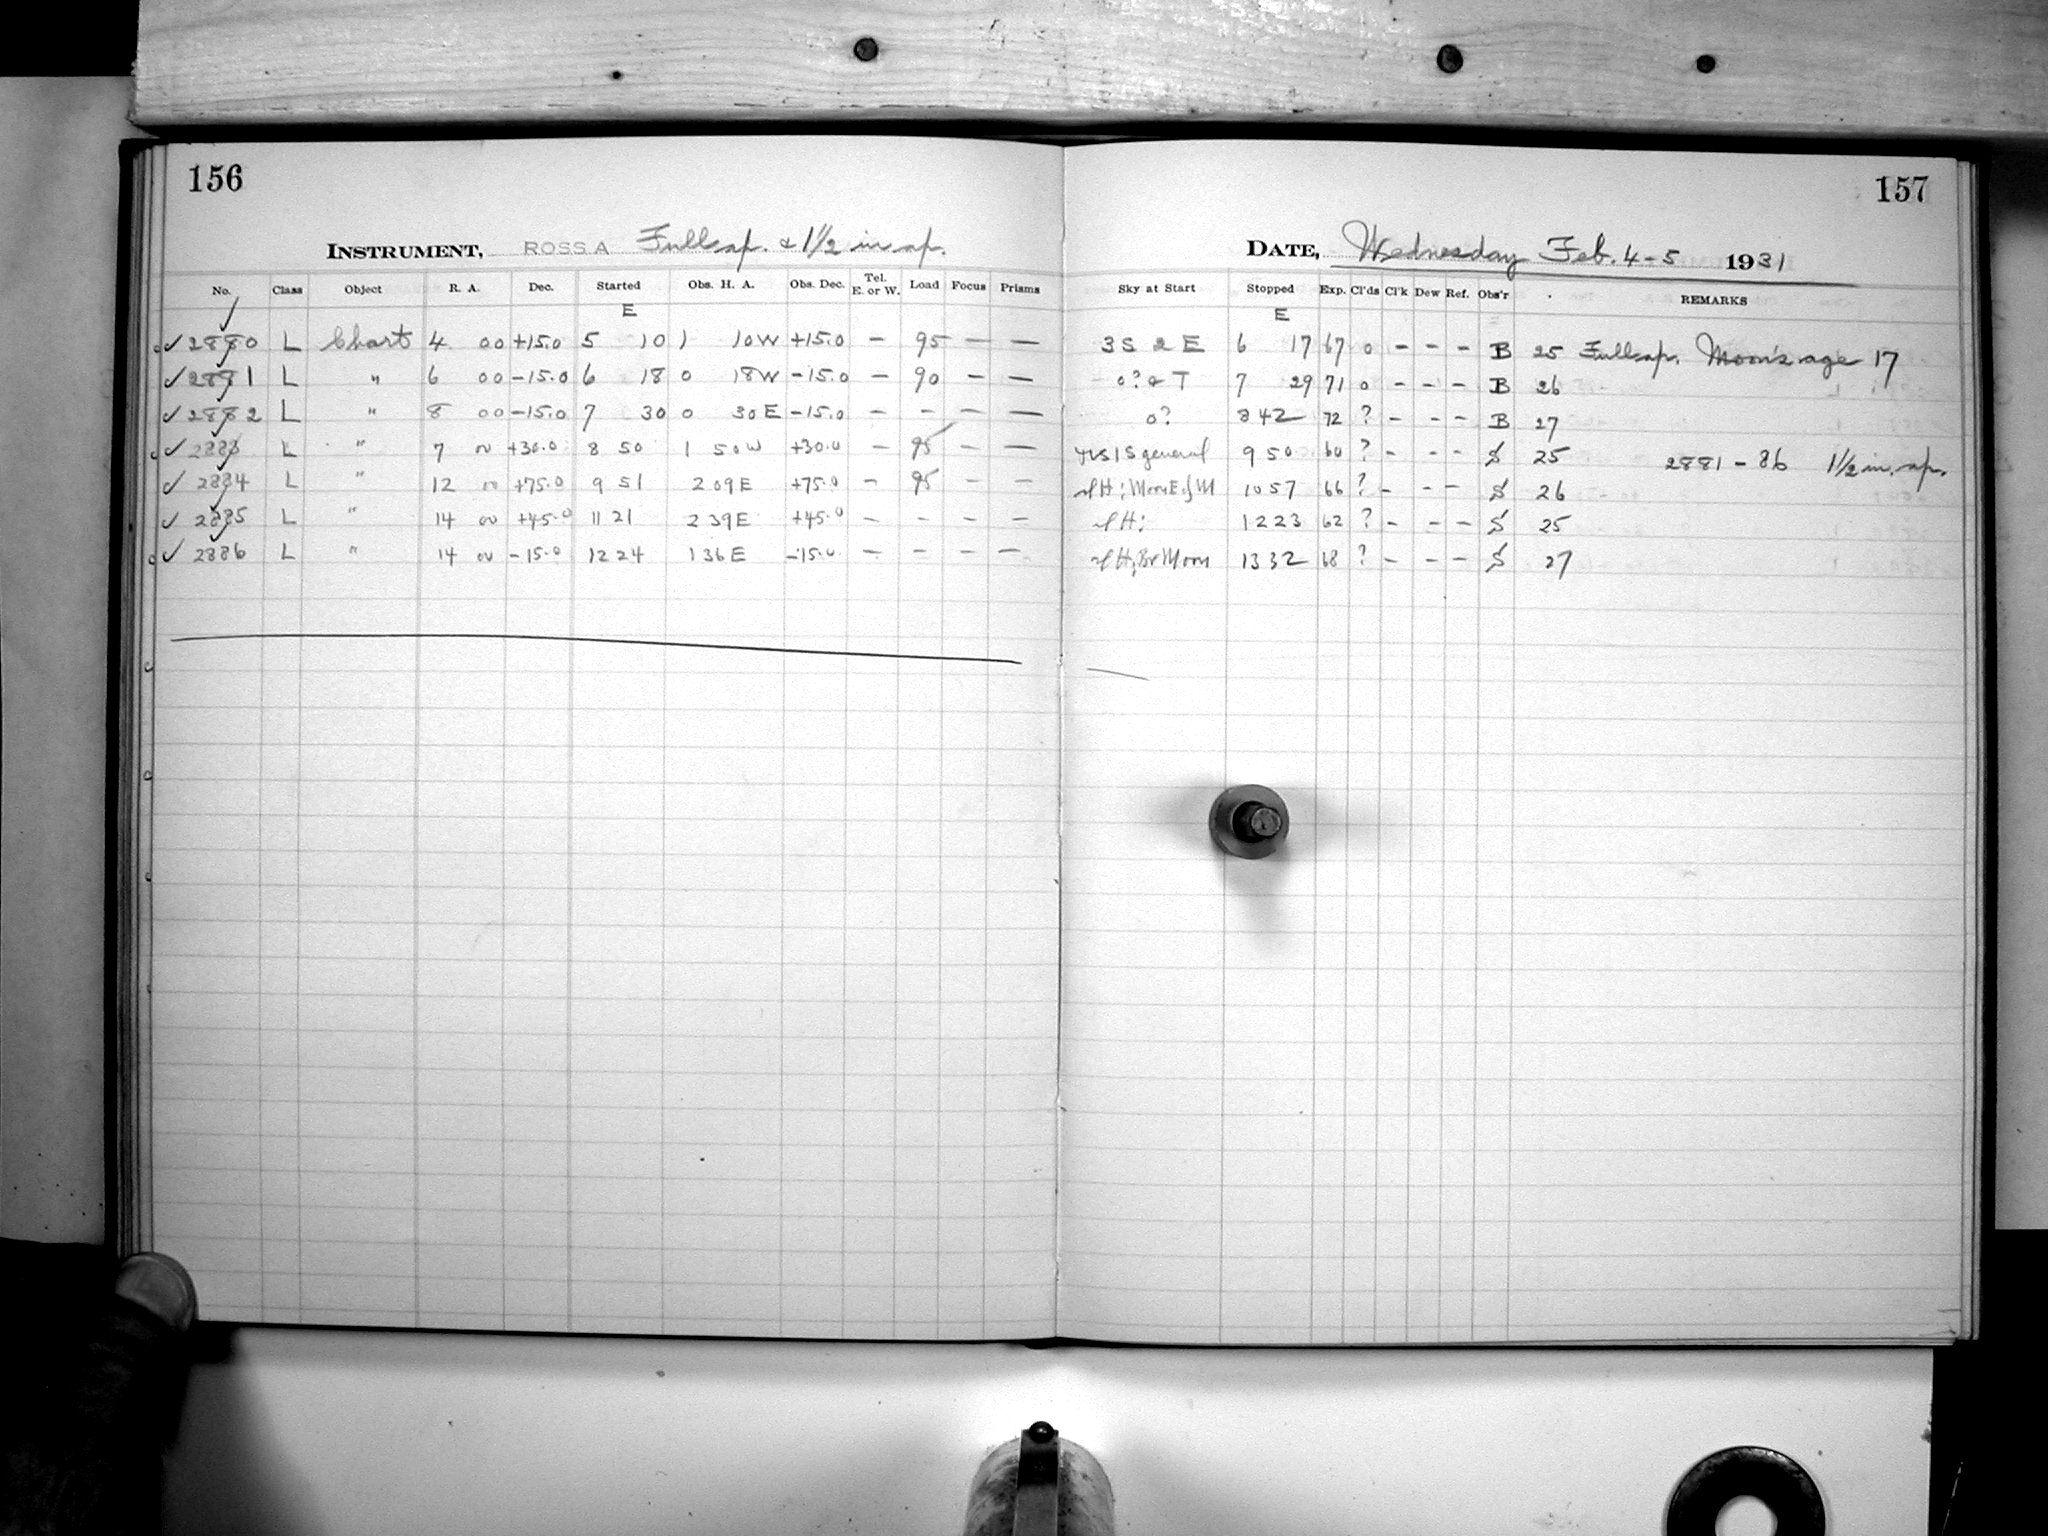 156
INSTRUMENT, ROSS A Full ap. & 1½ in ap.
No. Class Object R. A. Dec. Started Obs. H. A. Obs. Dec. Tel. E. or W. Load Focus Prisms
E
✓ 2880 L Chart 4 00 +15.0 5 10 1 10W +15.0 — 95 — —
✓ 2881 L " 6 00 -15.0 6 18 0 18W -15.0 — 90 — —
✓ 2882 L " 8 00 -15.0 7 30 0 30E -15.0 — — — —
✓ 2883 L " 7 00 +30.0 8 50 1 50W +30.0 — 95 — —
✓ 2884 L " 12 00 +75.0 9 51 2 09E +75.0 — 95 — —
✓ 2885 L " 14 00 +45.0 11 21 2 39E +45.0 — — — —
✓ 2886 L " 14 00 -15.0 12 24 1 36E -15.0 — — — —
157
DATE, Wednesday Feb. 4-5 1931
Sky at Start Stopped Exp. Cl'ds Cl'k Dew Ref. Obs'r REMARKS
E
3 S 2 E 6 17 67 0 - - - B 25 Full ap. Moon's age 17
0? & T 7 29 71 0 - - - B 26
0? 8 42 72 ? - - - B 27
general 9 50 60 ? - - - S 25 2881-86 1½ in. ap.
H; Moon E of M 10 57 66 ? - - - S 26
H; 12 23 62 ? - - - S 25
H; Br Moon 13 32 68 ? - - - S 27